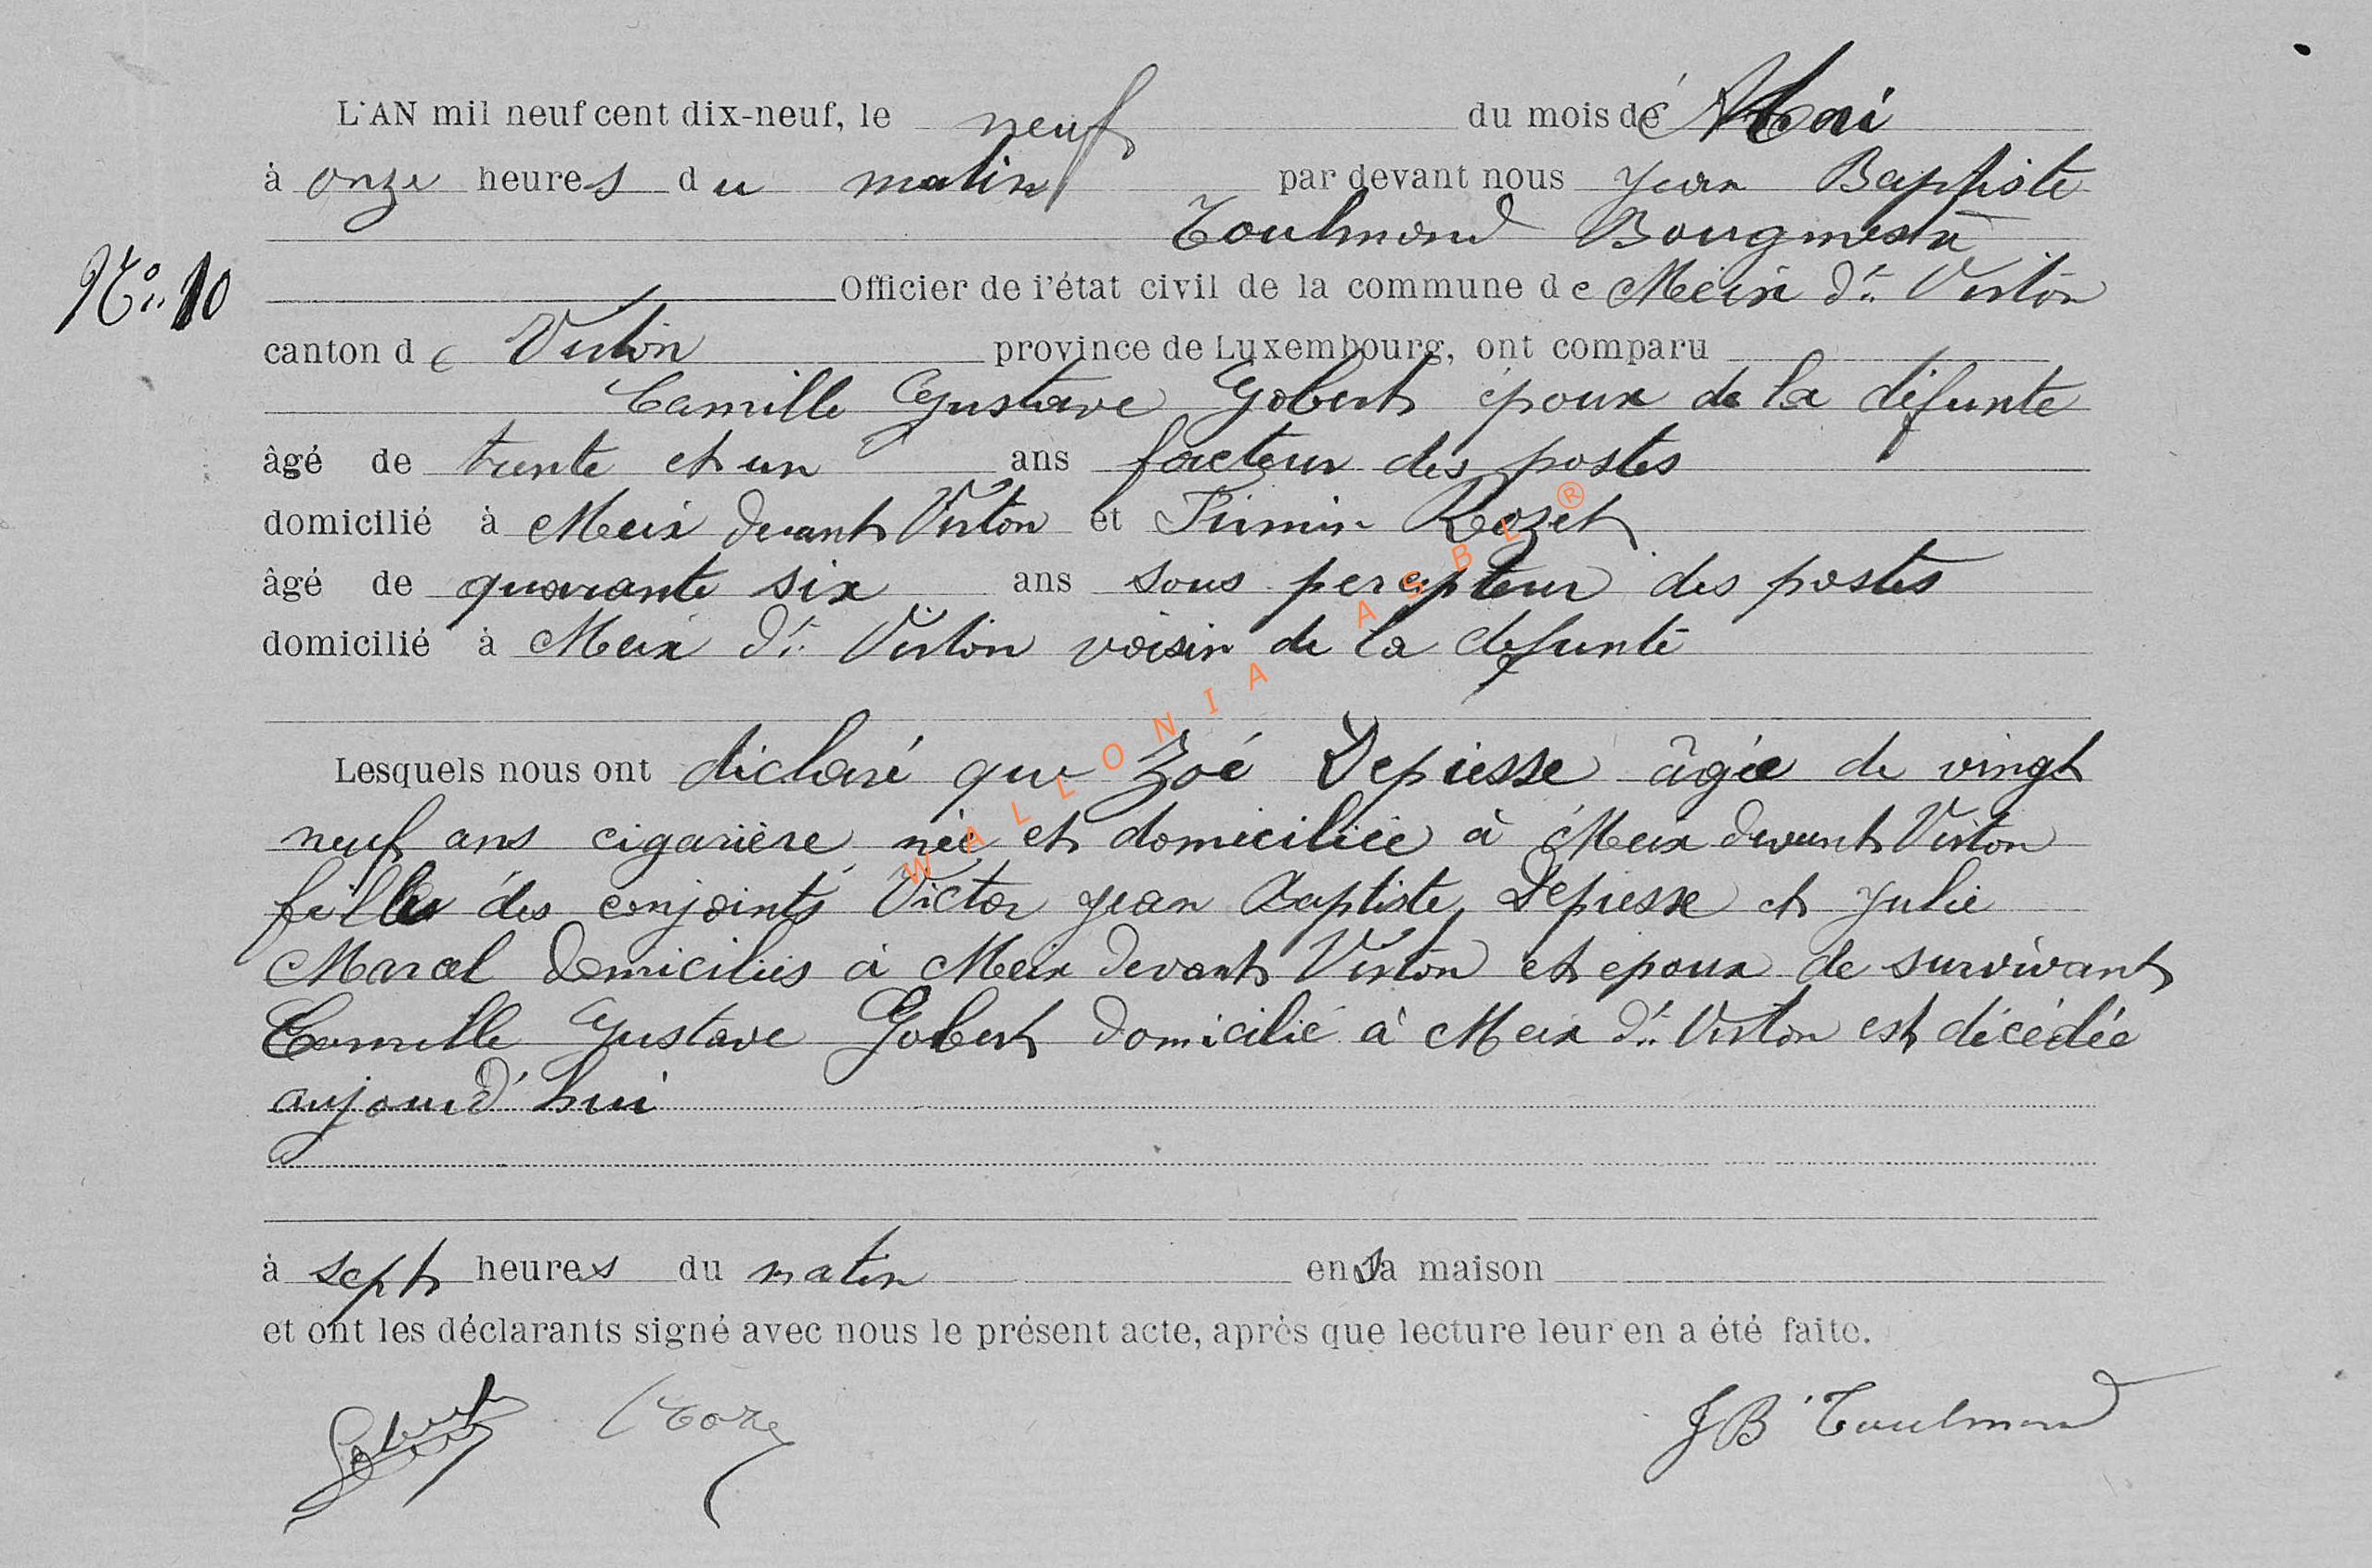 L'AN mil neuf cent dix-neuf, le neuf du mois de Mai
à onze heures du matin par devant nous Jean Baptiste
Toulmond Bourgmestre
N° 10
Officier de l'état civil de la commune de Meix dt Virton
canton de Virton province de Luxembourg, ont comparu
Camille Gustave Gobert époux de la défunte
âgé de trente et un ans facteur des postes
domicilié à Meix devant Virton et Firmin Rozet
âgé de quarante six ans sous percepteur des postes
domicilié à Meix dt Virton voisin de la defunte
Lesquels nous ont déclaré que Zoé Depiesse âgée de vingt
neuf ans cigarière née et domiciliée à Meix devant Virton
fille des conjoints Victor Jean Baptiste Depiesse et Julie
Marcel domiciliés à Meix devant Virton et epoux de survivant
Camille Gustave Gobert domicilié à Meix dt Virton est décédée
aujourd'hui
à sept heures du matin en sa maison
et ont les déclarants signé avec nous le présent acte, après que lecture leur en a été faite.
Gobert Roze JB Toulmond
WALLONIA ASBL ®